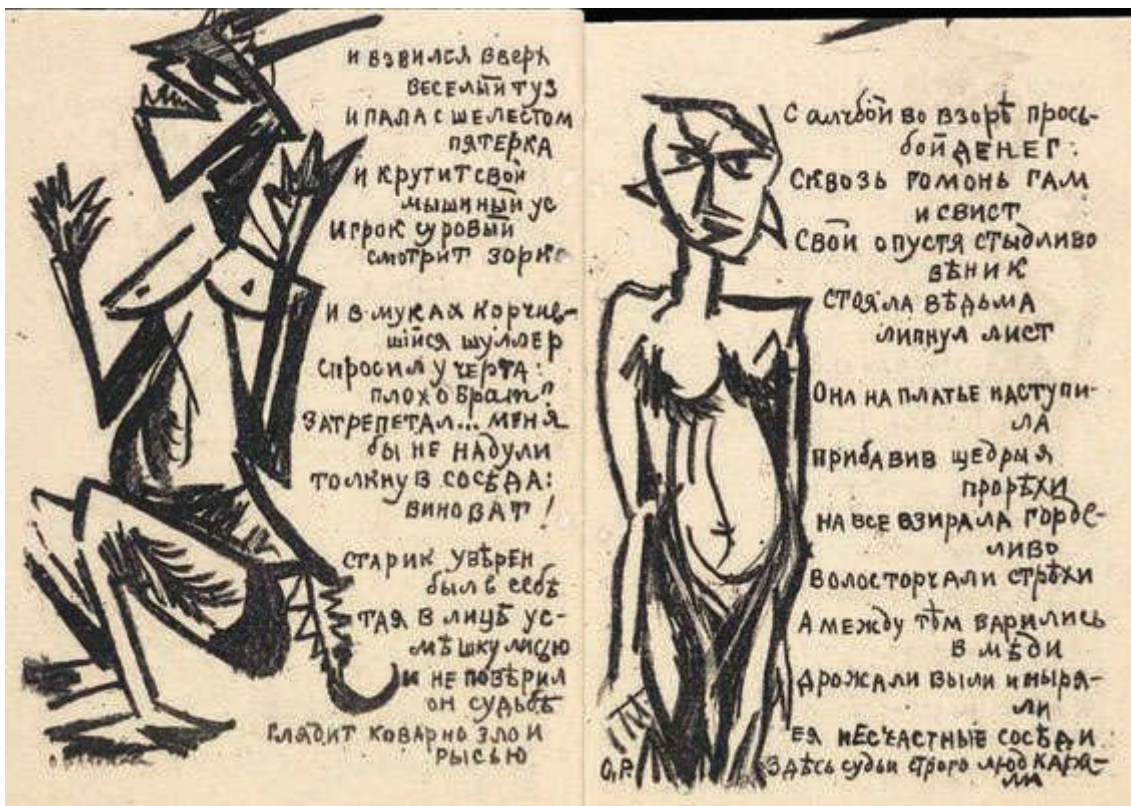 и взвился вверх
веселый туз
и пала с шелестом
пятерка
и крутит свой
мышиный ус
игрок суровый
смотрит зорко
и в муках корчив-
шійся шуллер
спросил у черта:
плохо брат?
затрепетал... меня
бы не надули
толкнув сосѣда:
виноват!
старик увѣрен
был в себѣ
тая в лицѣ ус-
мѣшку лисью
и не повѣрил
он судьбѣ
глядит коварно злой
рысью
С алчбой во взорѣ прось-
бой денег:
сквозь гомонь гам
и свист
свой опустя стыдливо
вѣник
стояла вѣдьма
липнул лист
Она на платье наступи-
ла
прибавив щедрыя
прорѣхи
на все взирала горде-
ливо
волос торчали стрѣхи
А между тѣм варились
в мѣди
дрожали выли и ныря-
ли
ея несчастные сосѣди
здѣсь судьи строго люд кара-
ла
О.Р.